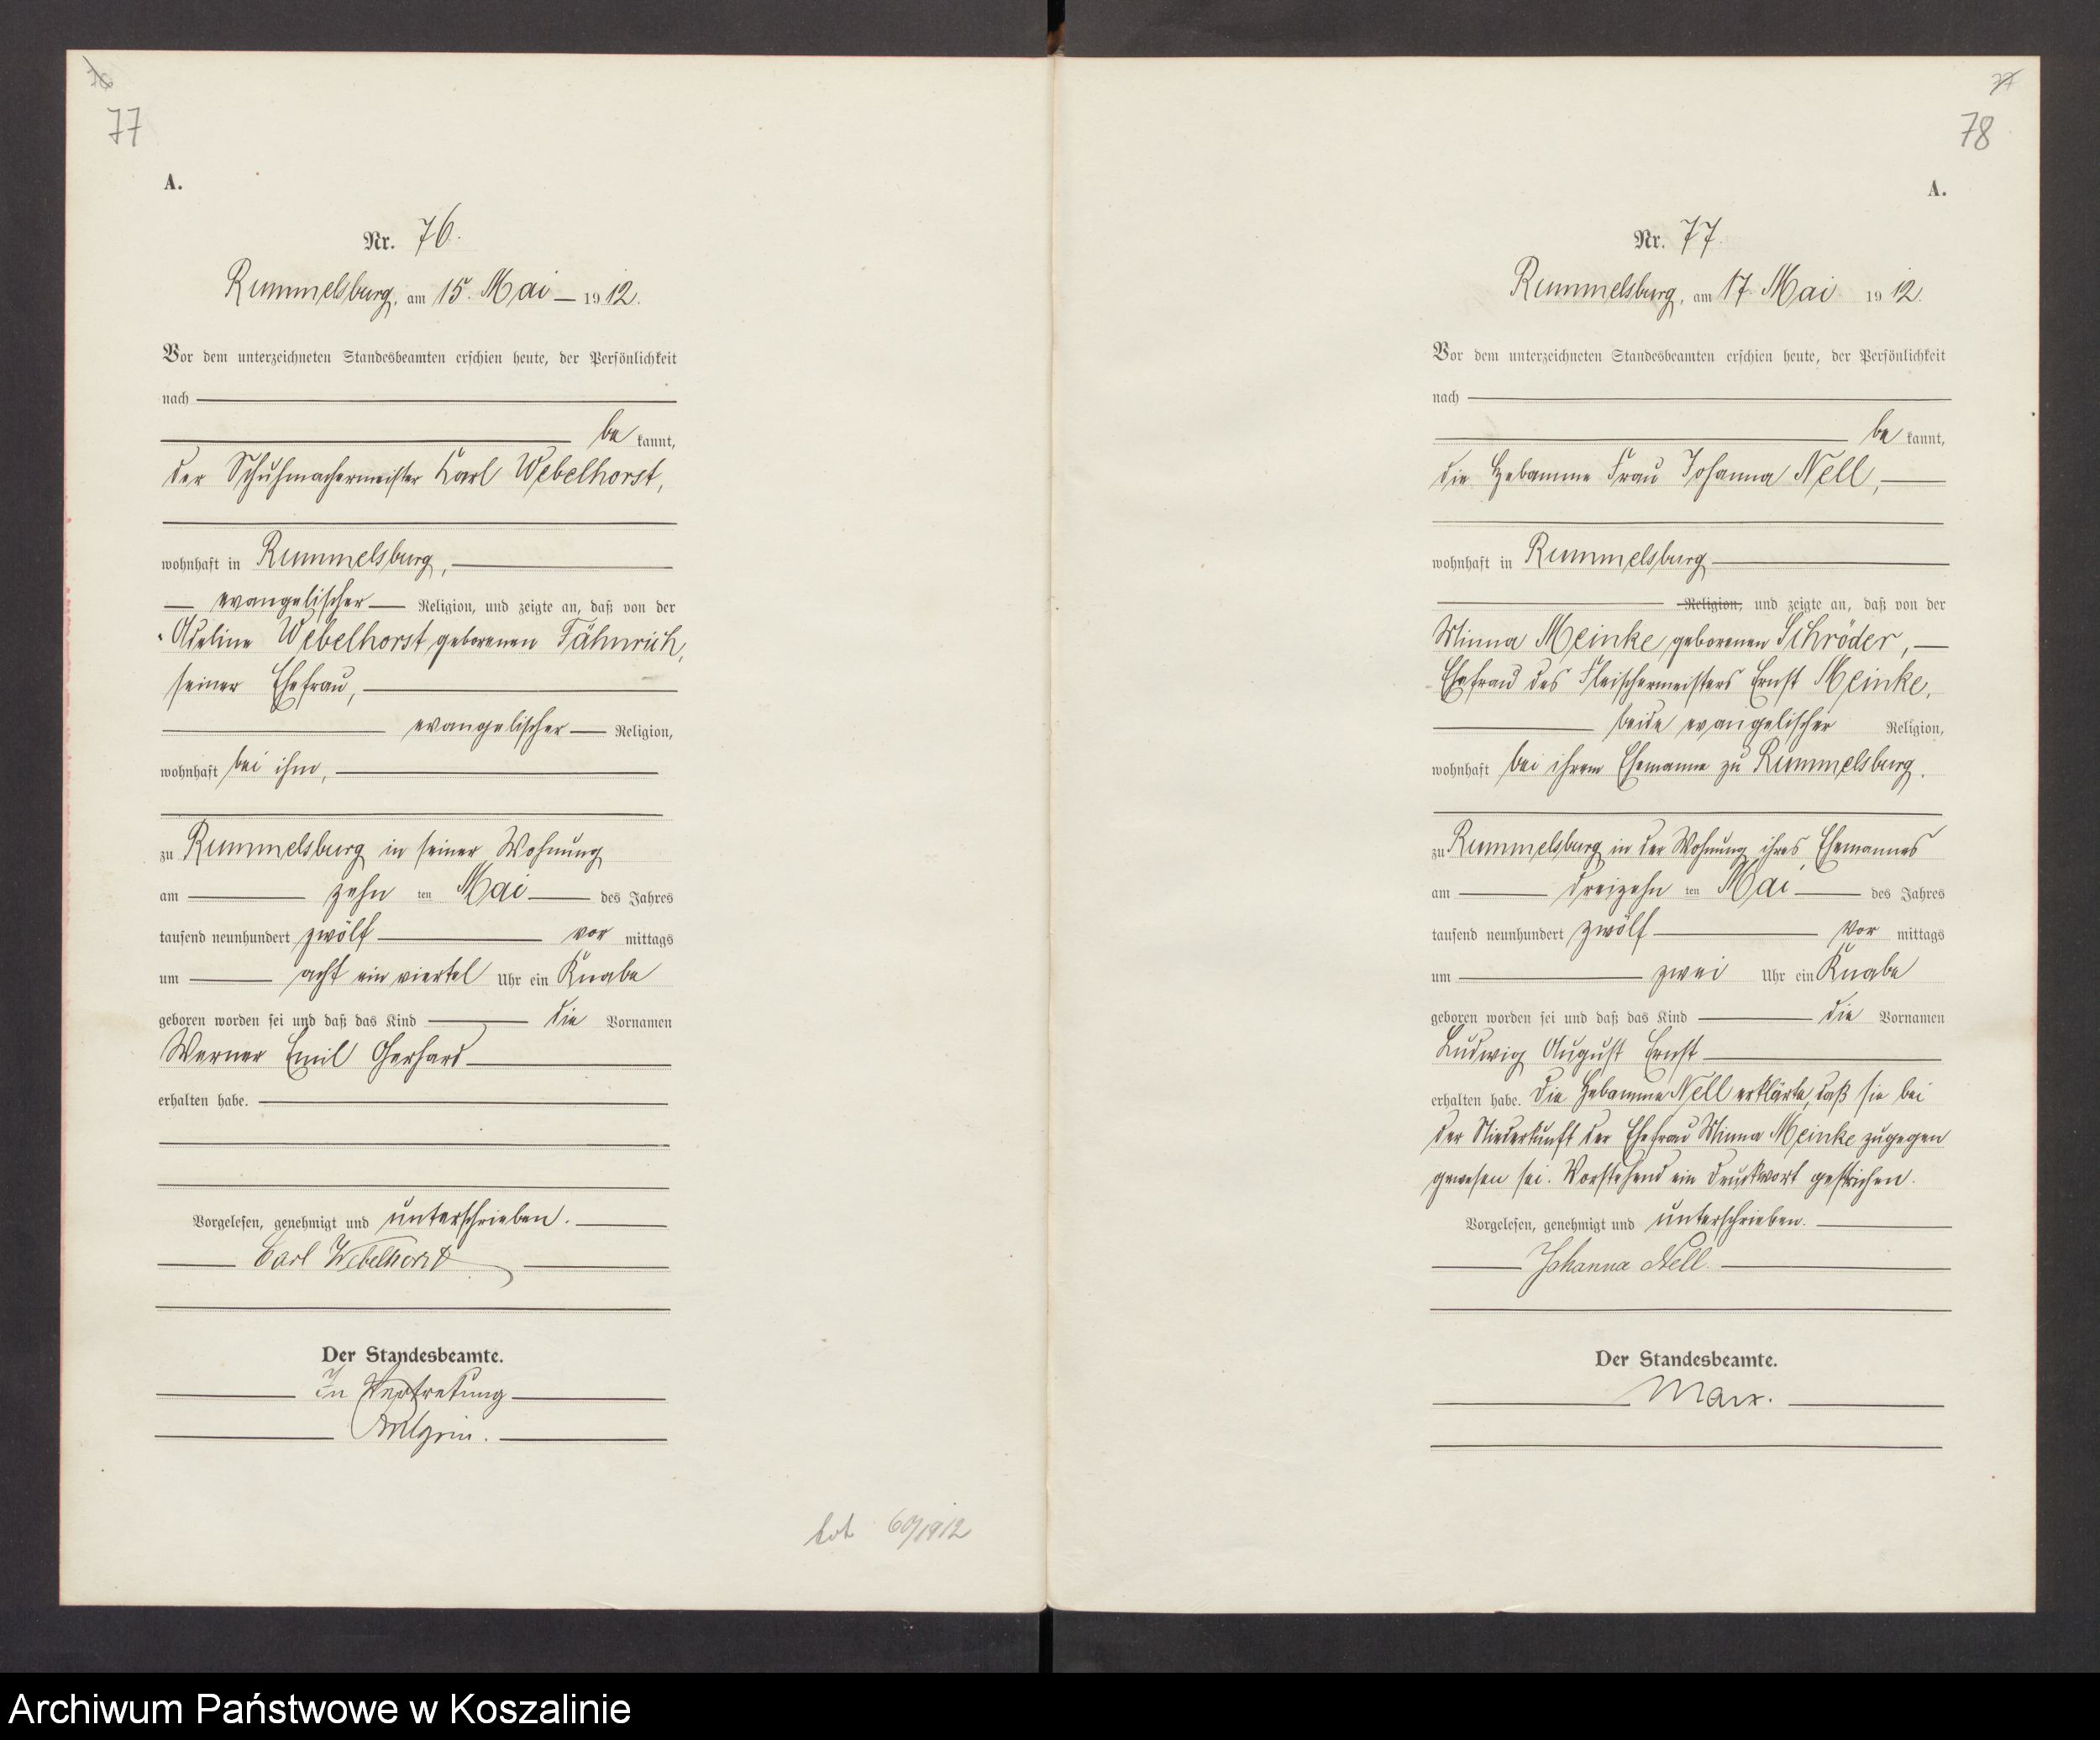 77
A.
Nr. 76.
Rummelsburg, am 15. Mai 1912.
Vor dem unterzeichneten Standesbeamten erschien heute, der Persönlichkeit
nach
be kannt,
der Schuhmachermeister Karl Webelhorst,
wohnhaft in Rummelsburg,
evangelischer Religion, und zeigte an, daß von der
Adeline Webelhorst geborenen Fähnrich,
seiner Ehefrau,
evangelischer Religion,
wohnhaft bei ihm,
zu Rummelsburg in seiner Wohnung
am zehn ten Mai des Jahres
tausend neunhundert zwölf vor mittags
um acht ein viertel Uhr ein Knabe
geboren worden sei und daß das Kind die Vornamen
Werner Emil Gerhard
erhalten habe.
Vorgelesen, genehmigt und unterschrieben.
Carl Webelhorst
Der Standesbeamte.
In Vertretung
tot 60/1912
78
A.
Nr. 77.
Rummelsburg, am 17. Mai 1912.
Vor dem unterzeichneten Standesbeamten erschien heute, der Persönlichkeit
nach
be kannt,
die Hebamme Frau Johanna Nell,
wohnhaft in Rummelsburg
Religion, und zeigte an, daß von der
Minna Meinke geborenen Schröder,
Ehefrau des Fleischermeisters Ernst Meinke,
beide evangelischer Religion,
wohnhaft bei ihrem Ehemanne zu Rummelsburg.
zu Rummelsburg in der Wohnung ihres Ehemannes
am dreizehn ten Mai des Jahres
tausend neunhundert zwölf Vor mittags
um zwei Uhr ein Knabe
geboren worden sei und daß das Kind die Vornamen
Ludwig August Ernst
erhalten habe. Die Hebamme Nell erklärte, daß sie bei
der Niederkunft der Ehefrau Minna Meinke zugegen
gewesen sei. Vorstehend ein Druckwort gestrichen.
Vorgelesen, genehmigt und unterschrieben.
Johanna Nell.
Der Standesbeamte.
Marx.
Archiwum Państwowe w Koszalinie